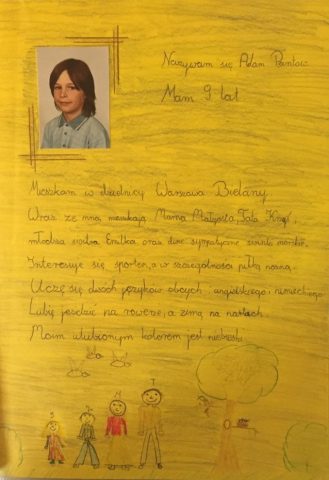 Nazywam się Adam
Mam 9 lat
Mieszkam w dzielnicy Warszawa Bielany.
Wraz ze mną mieszkają Mama Małgosia, Tata
młodsza siostra Emilka oraz dwie sympatyczne świnki morskie.
Interesuję się sportem, a w szczególności piłką nożną.
Uczę się dwóch języków obcych, angielskiego i niemieckiego
Lubię jeździć na rowerze, a zimą na nartach
Moim ulubionym kolorem jest niebieski